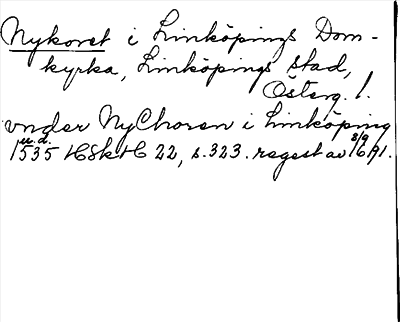 Nykoret i Linköpings Dom-
kyrka, Linköpings stad,
Österg. l.
vnder NyChoren i Linköping
u.d.
1535 HSkHC 22, s. 323. regest av 3/9 1691.